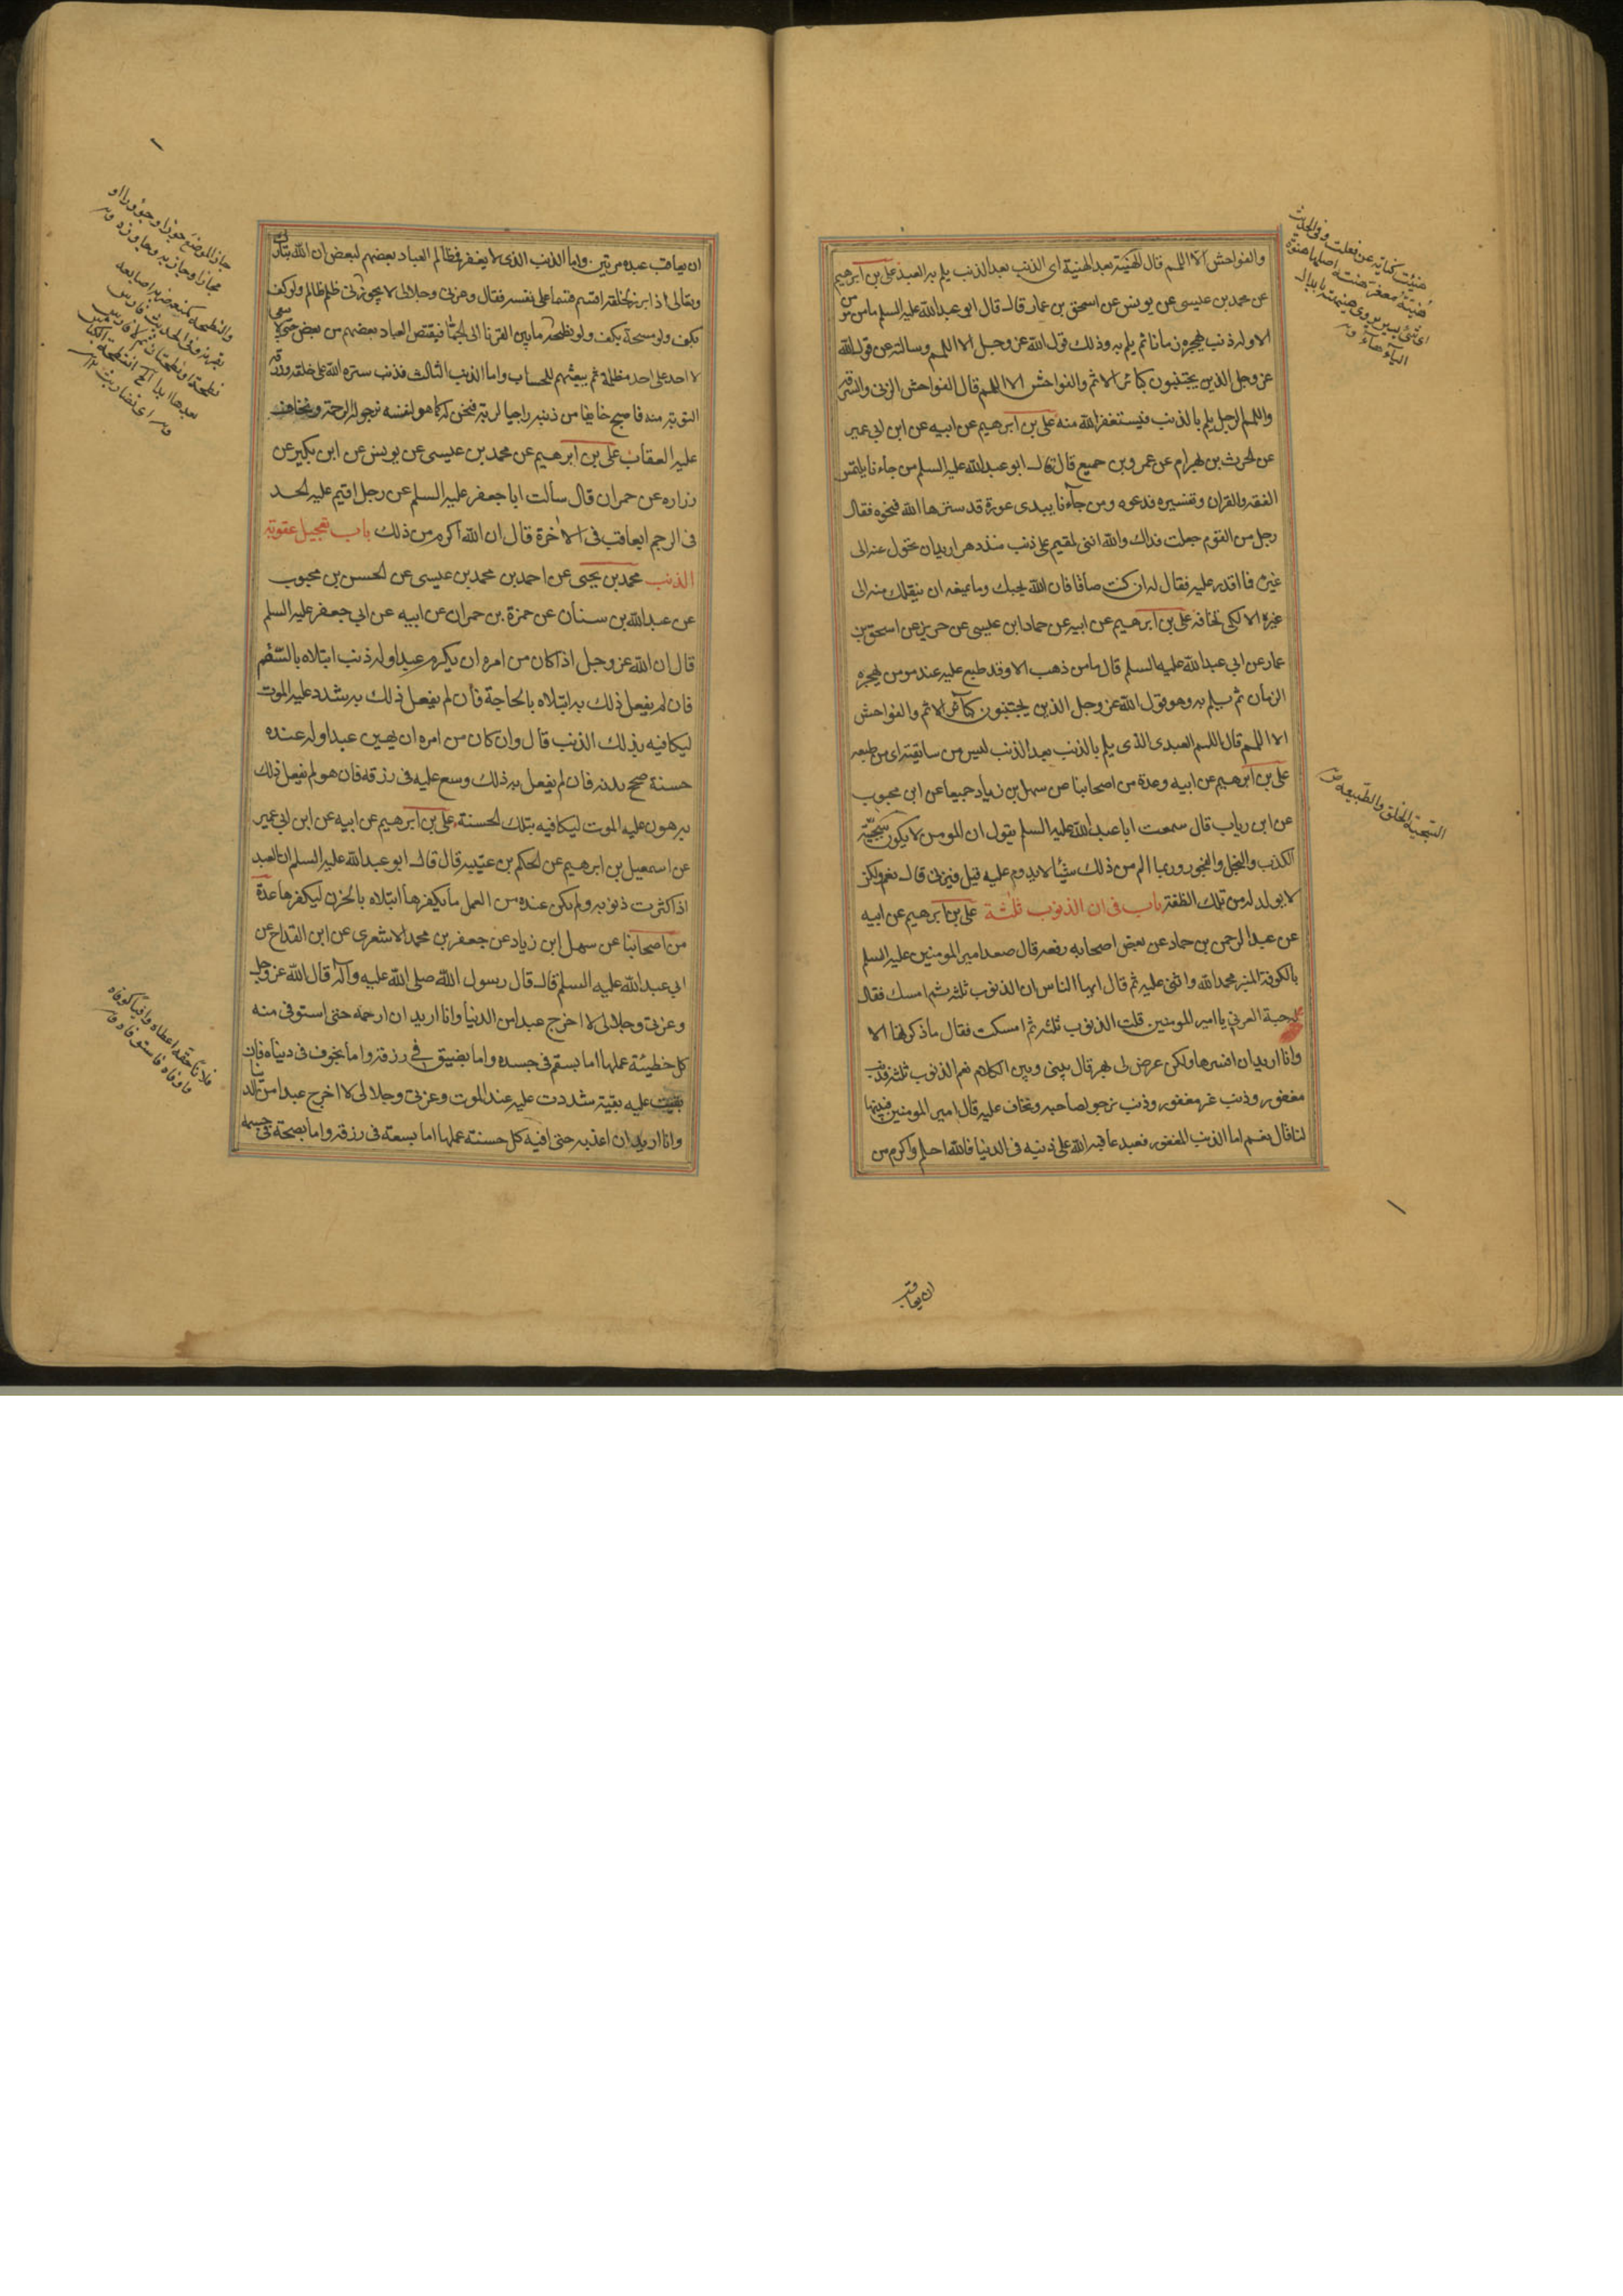 والفواحش الا اللمم قال الهنية بعد الهنية اى الذنب بعد الذنب يلم به العبد على بن ابرهيم
عن محمد بن عيسى عن يونس عن اسحق بن عمار قال قال ابو عبدالله عليه السلم ما من مؤمن
الا وله ذنب يهجره زمانا ثم يلم به وذلك قول الله عز وجل الا اللمم وسالته عن قول الله
عز وجل الذين يجتنبون كبائر الاثم والفواحش الا اللمم قال الفواحش الزنى والسرقة
واللمم الرجل يلم بالذنب فيستغفر الله منه على بن ابرهيم عن ابيه عن ابن ابى عمير
عن الحرث بن بهرام عن عمرو بن جميع قال قال ابو عبدالله عليه السلم من جاءنا يلتمس
الفقه والقران وتفسيره فدعوه ومن جاءنا يبدى عورة قد سترها الله فنحوه فقال
رجل من القوم جعلت فداك والله اننى لمقيم على ذنب منذ دهر اريد ان تحول عنه الى
غيره فما اقدر عليه فقال له ان كنت صادقا فان الله يحبك وما يمنعه ان ينقلك منه الى
غيره الا لكى تخافه على بن ابرهيم عن ابيه عن حماد ابن عيسى عن حريز عن اسحق بن
عمار عن ابى عبدالله عليه السلم قال ما من ذهب الا وقد طبع عليه عند مومن يهجره
الزمان ثم يلم به وهو قول الله عز وجل الذين يجتنبون كبائر الاثم والفواحش
الا اللمم قال اللمم العبدى الذى يلم بالذنب بعد الذنب ليس من سليقته اى من طبعه
على بن ابرهيم عن ابيه وعدة من اصحابنا عن سهل بن زياد جميعا عن ابن محبوب
عن ابن رياب قال سمعت ابا عبدالله عليه السلم يقول ان المومن لا يكون سجيته
الكذب والبخل والفجور وربما الم من ذلك شيئا لا يدوم عليه قيل فيزنى قال نعم ولكن
لا يولد له من تلك النطفة باب فى ان الذنوب ثلثة على بن ابرهيم عن ابيه
عن عبد الرحمن بن حماد عن بعض اصحابه رفعه قال صعد امير المومنين عليه السلم
بالكوفة المنبر فحمد الله واثنى عليه ثم قال ايها الناس ان الذنوب ثلثة ثم امسك فقال
له حبة العرنى يا امير المومنين قلت الذنوب ثلثة ثم امسكت فقال ما ذكرتها الا
وانا اريد ان افسرها ولكن عرض لى بهر قال بينى وبين الكلام نعم الذنوب ثلثة فذنب
مغفور وذنب غير مغفور وذنب نرجو لصاحبه ونخاف عليه قال امير المومنين فبينها
لنا قال نعم اما الذنب المغفور فعبد عاقبه الله على ذنبه فى الدنيا فالله احلم واكرم من
ان يعاقب
السجية الخلق والطبيعة ص
ان يعاقب عبده مرتين واما الذنب الذى لا يغفر فظالم العباد بعضهم لبعض ان الله تبارك
وتعالى اذا برز لخلقه اقسم قسما على نفسه فقال وعزتى وجلالى لا يجوزنى ظلم ظالم ولو كف
بكف ولو مسحة بكف ولو نطحة ما بين القرنا الى الجماء فيقتص للعباد بعضهم من بعض حتى لا يبقى
لاحد على احد مظلمة ثم يبعثهم للحساب واما الذنب الثالث فذنب ستره الله على خلقه ورزقه
التوبة منه فاصبح خايفا من ذنبه راجيا لربه فنحن له كما هو لنفسه نرجو له الرحمة ونخاف
عليه العقاب على بن ابرهيم عن محمد بن عيسى عن يونس عن ابن بكير عن
زراره عن حمران قال سألت ابا جعفر عليه السلم عن رجل اقيم عليه الحد
فى الرجم ايعاقب فى الاخرة قال ان الله اكرم من ذلك باب تعجيل عقوبة
الذنب محمد بن يحيى عن احمد بن محمد بن عيسى عن الحسن بن محبوب
عن عبدالله بن سنان عن حمزة بن حمران عن ابيه عن ابى جعفر عليه السلم
قال ان الله عز وجل اذا كان من امره ان يكرم عبدا وله ذنب ابتلاه بالسقم
فان لم يفعل ذلك به ابتلاه بالحاجة فان لم يفعل ذلك به شدد عليه الموت
ليكافيه بذلك الذنب قال وان كان من امره ان يهين عبدا وله عنده
حسنة صحح بدنه فان لم يفعل به ذلك وسع عليه فى رزقه فان هو لم يفعل ذلك
به هون عليه الموت ليكافيه بتلك الحسنة على بن ابرهيم عن ابيه عن ابن ابى عمير
عن اسمعيل بن ابرهيم عن الحكم بن عتيبه قال قال ابو عبدالله عليه السلم ان العبد
اذا كثرت ذنوبه ولم يكن عنده من العمل ما يكفرها ابتلاه بالحزن ليكفرها عدة
من اصحابنا عن سهل ابن زياد عن جعفر بن محمد الاشعرى عن ابن القداح عن
ابى عبدالله عليه السلم قال قال رسول الله صلى الله عليه وآله قال الله عز وجل
وعزتى وجلالى لا اخرج عبدا من الدنيا وانا اريد ان ارحمه حتى استوفى منه
كل خطيئة عملها اما بسقم فى جسده واما بضيق فى رزقه واما بخوف فى دنياه فان
بقيت عليه بقية شددت عليه عند الموت وعزتى وجلالى لا اخرج عبدا من الدنيا
وانا اريد ان اعذبه حتى اوفيه كل حسنة عملها اما بسعة فى رزقه واما بصحة فى جسمه